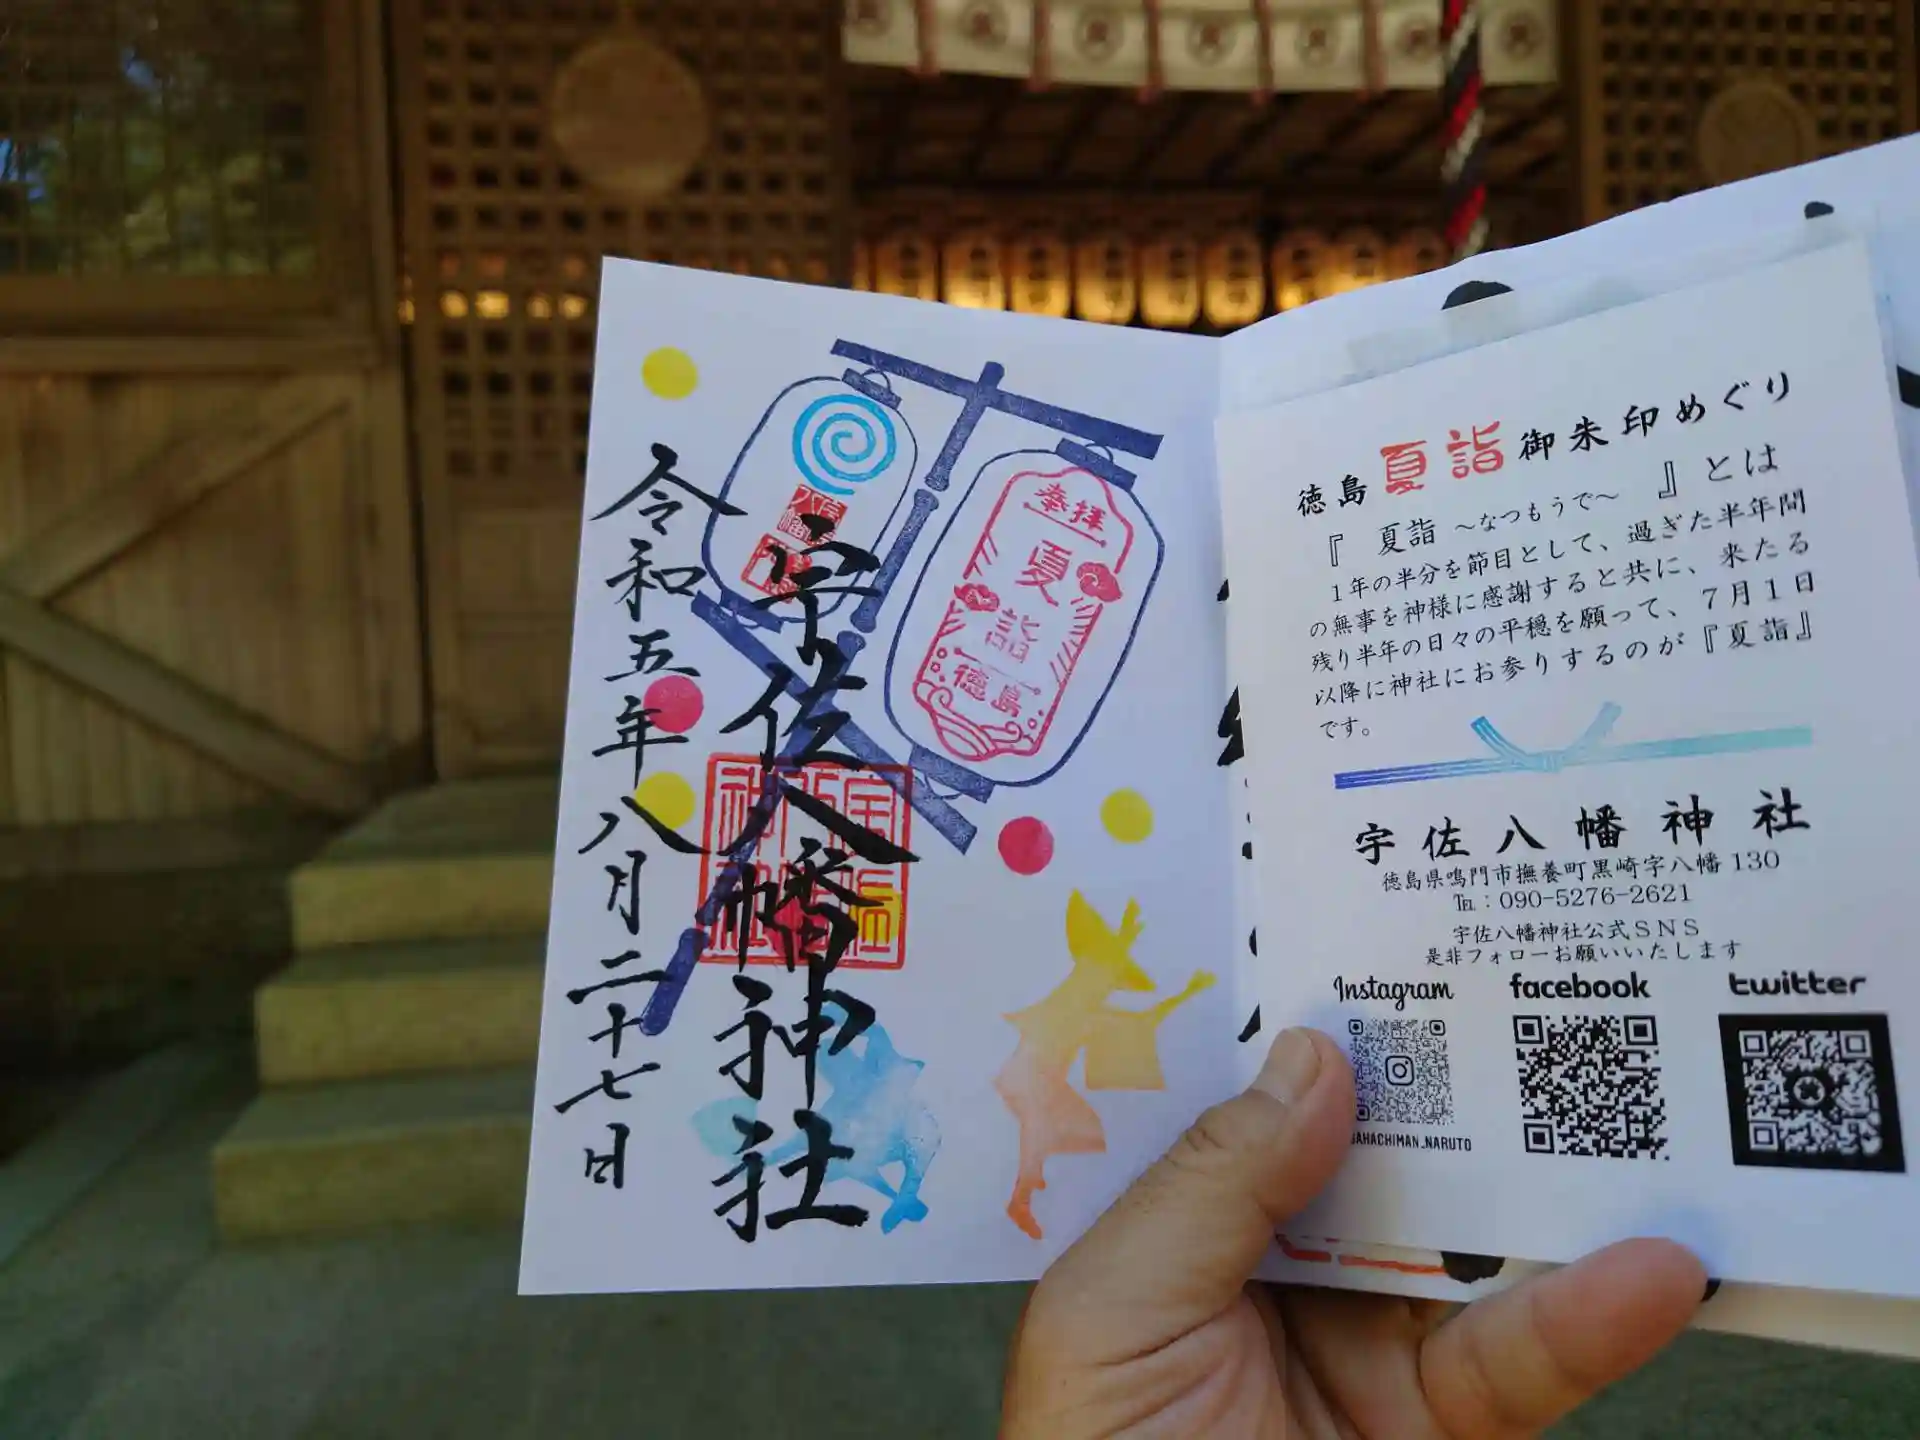 令和五年八月二十七日
宇佐八幡神社
奉拝
夏詣
徳島
徳島夏詣御朱印めぐり
『 夏詣 ～なつもうで～ 』とは
1年の半分を節目として、過ぎた半年間
の無事を神様に感謝すると共に、来たる
残り半年の日々の平穏を願って、7月1日
以降に神社にお参りするのが『夏詣』
です。
宇佐八幡神社
徳島県鳴門市撫養町黒崎字八幡130
℡：090-5276-2621
宇佐八幡神社公式SNS
是非フォローお願いいたします
Instagram
facebook
twitter
AHACHIMAN_NARUTO